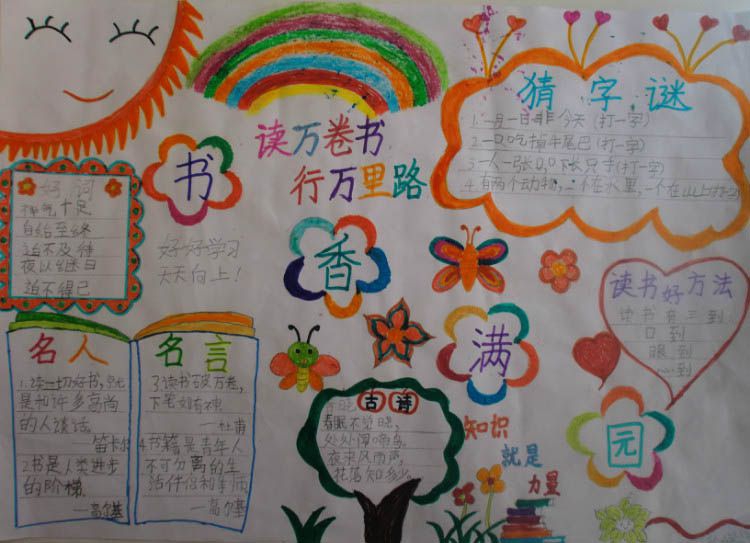 读万卷书
行万里路
猜字谜
1.一月一日非今天(打一字)
2.一口吃掉牛尾巴(打一字)
3.一人一张口,口下长只手(打一字)
4.有两个动物,一个在水里,一个在山上(打一字)
书
香
满
园
好词
神气十足
自始至终
迫不及待
夜以继日
迫不得已
好好学习
天天向上!
读书好方法
读书有三到:
口到
眼到
心到
名人
1.读一切好书,
是和许多高尚
的人谈话。
—笛卡尔
2.书是人类进步
的阶梯.
—高尔基
名言
3.读书破万卷,
下笔如有神
—杜甫
4.书籍是青年人
不可分离的生
活伴侣和导师
—高尔基
古诗
春眠不觉晓,
处处闻啼鸟
夜来风雨声,
花落知多少
知识
就是
力量